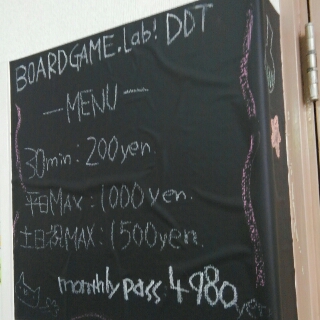 BOARDGAME.Lab! DDT
—MENU—
30min: 200yen.
平日MAX: 1000yen.
土日祝MAX: 1500yen.
monthly pass 4980yen